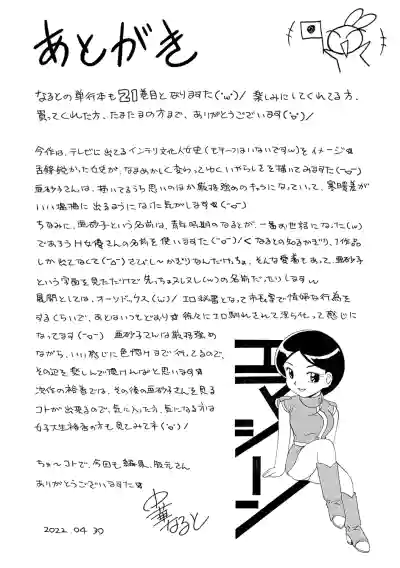 あとがき
なるとの単行本も21巻目となりますた(･ω･)/ 楽しみにしてくれてる方、
買ってくれた方、たまたまの方まで、ありがとうございます('o')/
今作は、テレビに出てるインテリ文化人女史(モチーフはいないですw)をイメージ★
舌鋒鋭かった女史が、なまめかしく変わってゆくいやらしさを描いてみますた(^o^)
亜砂子さんは、描いてるうち思いのほか厳格強めのキャラになっていって、寒暖差が
いい塩梅に出るようになった気がします(^o^)
ちなみに、亜砂子という名前は、青年時期のなるとが、一番お世話になった(w)
であろうH女優さんの名前を使いますた(^o^)/ なるとの知るかぎり、1作品
しか出てなくて(^o^) さびし〜かぎりなんだけれど、そんな愛着もあって、亜砂子
という字面を見ただけで先っちょヌレヌレ(w)の名前だったりしますw
展開としては、オーソドックス(w)/ エロ秘書となって
するくらいで、あとはいつもどおり 彼々にエロ馴れされて淫ら化って感じに
なってます(^o^) 亜砂子さんは厳格強め
ながら、いい感じに色惚けまで行ってるので、
その辺を楽しんで頂ければと思います★
次作の裕香では、その後の亜砂子さんを見る
コトが出来るので、気に入った方、気になる方は
女子大生裕香の方も見てみてネ('o')/
ちゅ〜コトで、今回も編集、版元さん
ありがとうございますた★
中華なると
2022.04.30
エマシーン